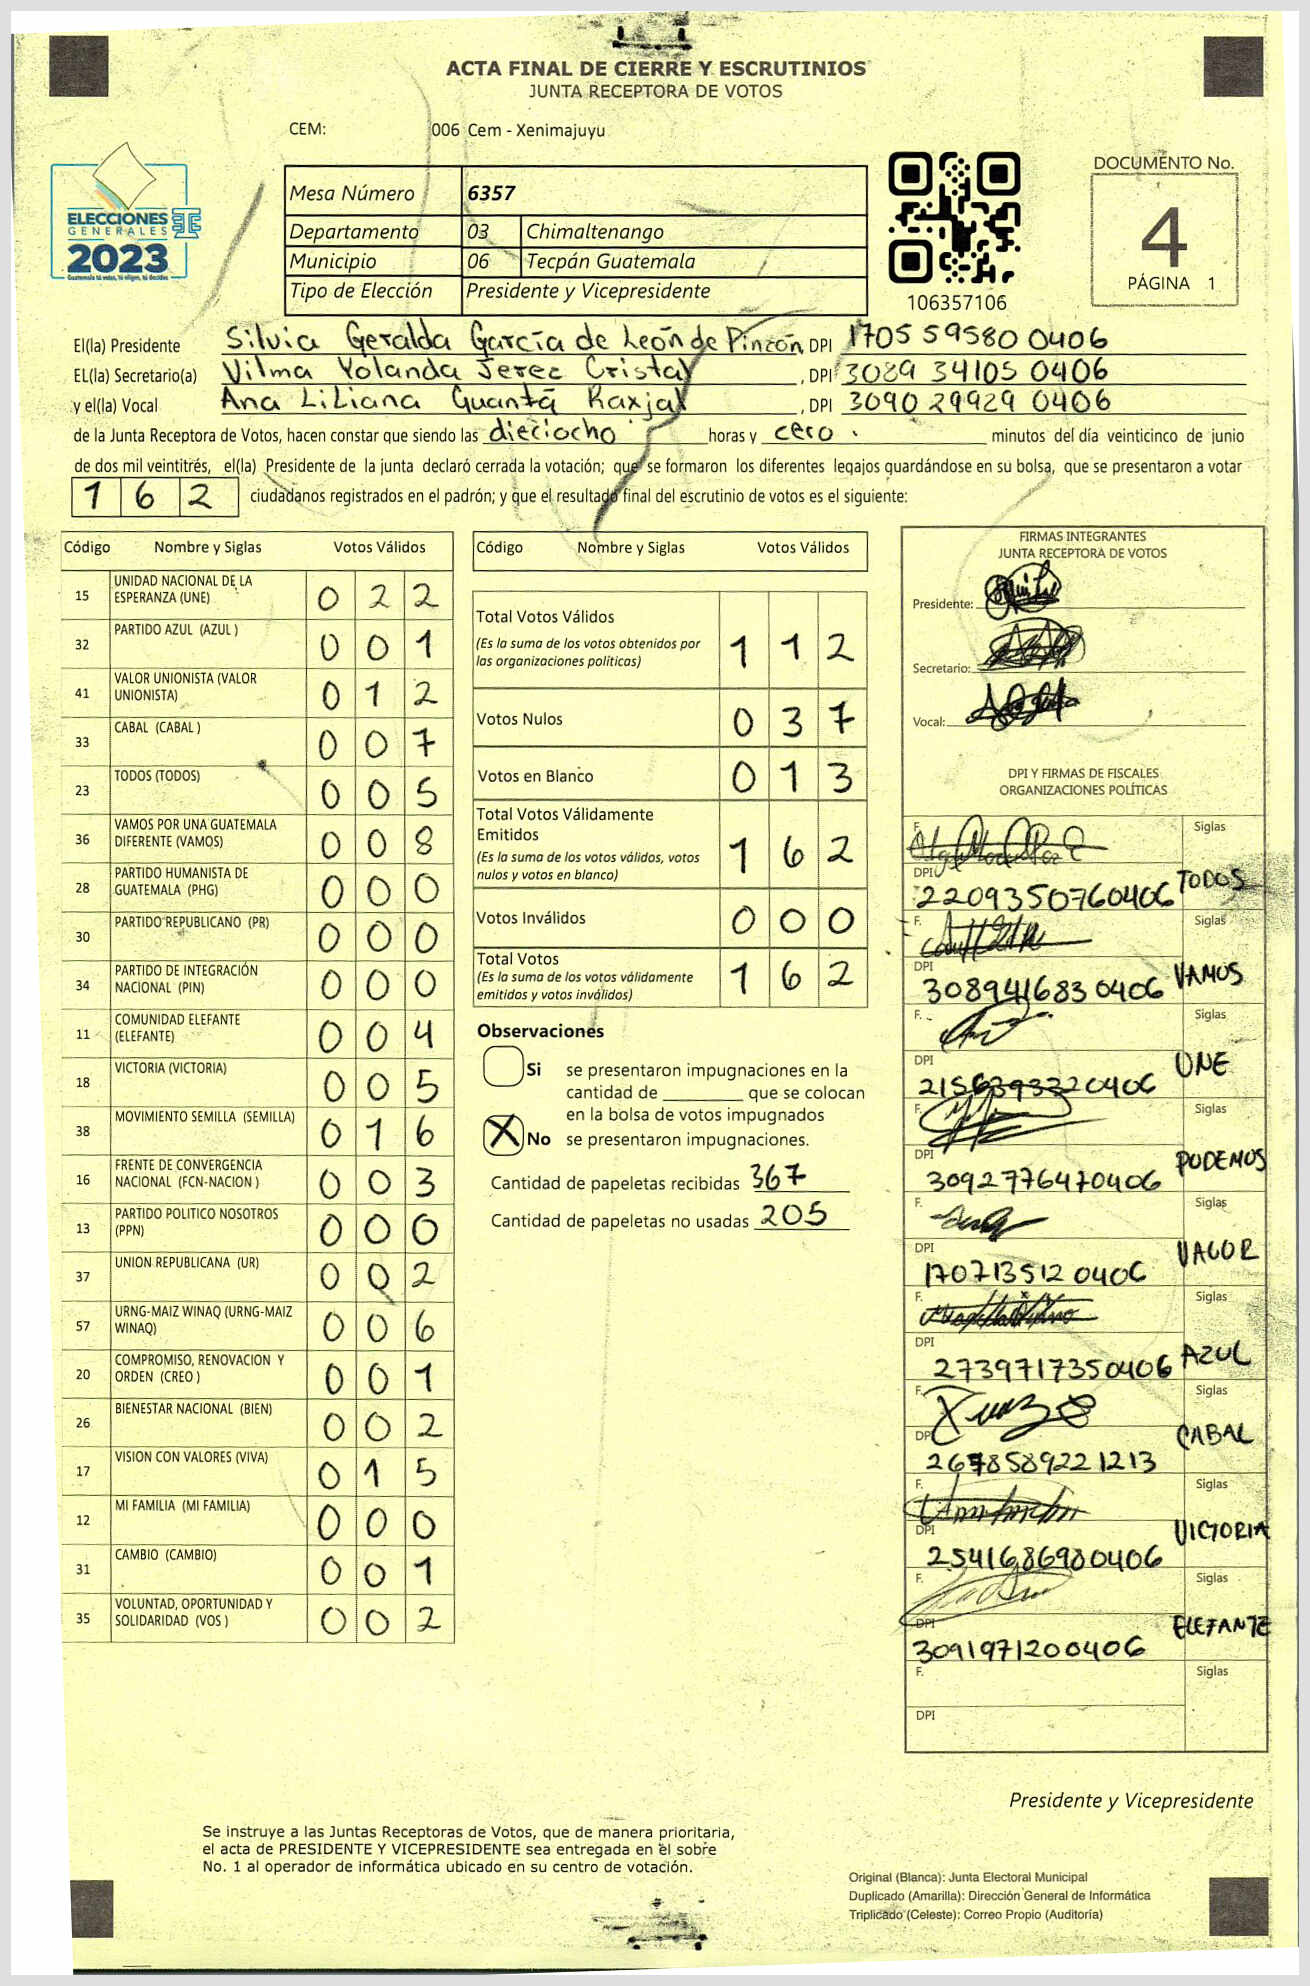 ACTA FINAL DE CIERRE Y ESCRUTINIOS
JUNTA RECEPTORA DE VOTOS
CEM: 006 Cem - Xenimajuyu
ELECCIONES
GENERALES
2023
Guatemala tú votas, tú eliges, tú decides
Mesa Número 6357
Departamento 03 Chimaltenango
Municipio 06 Tecpán Guatemala
Tipo de Elección Presidente y Vicepresidente
106357106
DOCUMENTO No.
4
PÁGINA 1
El(la) Presidente Silvia Geralda García de León de Pinzón, DPI 1705 59580 0406
EL(la) Secretario(a) Vilma Yolanda Jerez Cristal, DPI 3089 34105 0406
y el(la) Vocal Ana Liliana Guantá Raxjal, DPI 3090 29929 0406
de la Junta Receptora de Votos, hacen constar que siendo las dieciocho horas y cero minutos del día veinticinco de junio
de dos mil veintitrés, el(la) Presidente de la junta declaró cerrada la votación; que se formaron los diferentes legajos guardándose en su bolsa, que se presentaron a votar
162 ciudadanos registrados en el padrón; y que el resultado final del escrutinio de votos es el siguiente:
Código Nombre y Siglas Votos Válidos
15 UNIDAD NACIONAL DE LA ESPERANZA (UNE) 022
32 PARTIDO AZUL (AZUL ) 001
41 VALOR UNIONISTA (VALOR UNIONISTA) 012
33 CABAL (CABAL ) 007
23 TODOS (TODOS) 005
36 VAMOS POR UNA GUATEMALA DIFERENTE (VAMOS) 008
28 PARTIDO HUMANISTA DE GUATEMALA (PHG) 000
30 PARTIDO REPUBLICANO (PR) 000
34 PARTIDO DE INTEGRACIÓN NACIONAL (PIN) 000
11 COMUNIDAD ELEFANTE (ELEFANTE) 004
18 VICTORIA (VICTORIA) 005
38 MOVIMIENTO SEMILLA (SEMILLA) 016
16 FRENTE DE CONVERGENCIA NACIONAL (FCN-NACION ) 003
13 PARTIDO POLITICO NOSOTROS (PPN) 000
37 UNION REPUBLICANA (UR) 002
57 URNG-MAIZ WINAQ (URNG-MAIZ WINAQ) 006
20 COMPROMISO, RENOVACION Y ORDEN (CREO ) 001
26 BIENESTAR NACIONAL (BIEN) 002
17 VISION CON VALORES (VIVA) 015
12 MI FAMILIA (MI FAMILIA) 000
31 CAMBIO (CAMBIO) 001
35 VOLUNTAD, OPORTUNIDAD Y SOLIDARIDAD (VOS ) 002
Código Nombre y Siglas Votos Válidos
Total Votos Válidos 112
(Es la suma de los votos obtenidos por las organizaciones políticas)
Votos Nulos 037
Votos en Blanco 013
Total Votos Válidamente Emitidos 162
(Es la suma de los votos válidos, votos nulos y votos en blanco)
Votos Inválidos 000
Total Votos 162
(Es la suma de los votos válidamente emitidos y votos inválidos)
Observaciones
Si se presentaron impugnaciones en la
cantidad de ________ que se colocan
en la bolsa de votos impugnados
X No se presentaron impugnaciones.
Cantidad de papeletas recibidas 367
Cantidad de papeletas no usadas 205
FIRMAS INTEGRANTES
JUNTA RECEPTORA DE VOTOS
Presidente:
Secretario:
Vocal:
DPI Y FIRMAS DE FISCALES
ORGANIZACIONES POLÍTICAS
F. Siglas
DPI 2209350760406 TODOS
F. Siglas
DPI 3089416830406 VAMOS
F. Siglas
DPI 2156393320406 UNE
F. Siglas
DPI 3092776470406 PODEMOS
F. Siglas
DPI 1707135120406 VALOR
F. Siglas
DPI 2739717350406 AZUL
F. Siglas
DPI 2678589221213 CABAL
F. Siglas
DPI 2541686980406 VICTORIA
F. Siglas
DPI 3091971200406 ELEFANTE
F. Siglas
DPI
Presidente y Vicepresidente
Se instruye a las Juntas Receptoras de Votos, que de manera prioritaria,
el acta de PRESIDENTE Y VICEPRESIDENTE sea entregada en el sobre
No. 1 al operador de informática ubicado en su centro de votación.
Original (Blanca): Junta Electoral Municipal
Duplicado (Amarilla): Dirección General de Informática
Triplicado (Celeste): Correo Propio (Auditoría)